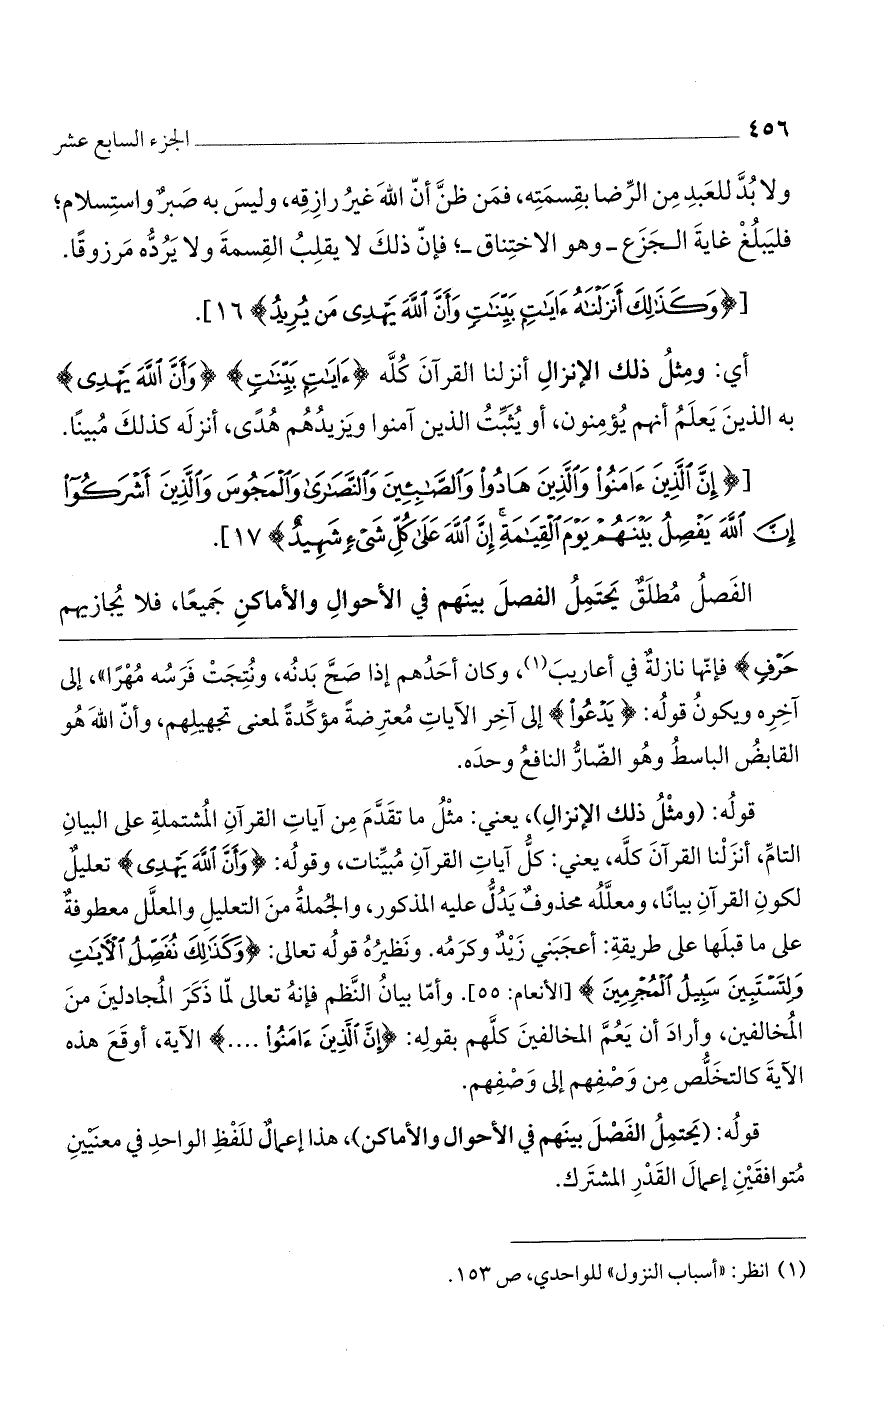 ٤٥٦ ــــــ الجزء السابع عشر
ولا بُدَّ للعَبدِ مِن الرِّضا بقِسمَتِه، فمَن ظنَّ أنّ اللهَ غيرُ رازِقِه، وليسَ به صَبرٌ واستِسلام؛
فليَبلُغْ غايةَ الـجَزَع ـ وهو الاختِناق ـ؛ فإنّ ذلكَ لا يقلِبُ القِسمةَ ولا يَرُدُّه مَرزوقًا.
[﴿وَكَذَٰلِكَ أَنزَلْنَٰهُ ءَايَٰتٍۭ بَيِّنَٰتٍ وَأَنَّ ٱللَّهَ يَهْدِى مَن يُرِيدُ﴾ ١٦].
أي: ومِثلُ ذلك الإنزالِ أنزلنا القرآنَ كُلَّه ﴿ءَايَٰتٍۭ بَيِّنَٰتٍ﴾ ﴿وَأَنَّ ٱللَّهَ يَهْدِى﴾
به الذينَ يَعلَمُ أنهم يُؤمِنون، أو يُثَبِّتُ الذين آمنوا ويَزيدُهُم هُدًى، أنزلَه كذلكَ مُبينًا.
[﴿إِنَّ ٱلَّذِينَ ءَامَنُوا۟ وَٱلَّذِينَ هَادُوا۟ وَٱلصَّٰبِـِٔينَ وَٱلنَّصَٰرَىٰ وَٱلْمَجُوسَ وَٱلَّذِينَ أَشْرَكُوٓا۟
إِنَّ ٱللَّهَ يَفْصِلُ بَيْنَهُمْ يَوْمَ ٱلْقِيَٰمَةِ ۚ إِنَّ ٱللَّهَ عَلَىٰ كُلِّ شَىْءٍ شَهِيدٌ﴾ ١٧].
الفَصلُ مُطلَقٌ يَحتَمِلُ الفصلَ بينَهم في الأحوالِ والأماكنِ جَميعًا، فلا يُجازيهم
حَرْفٍ﴾ فإنّها نازلةٌ في أعاريبَ(١)، وكان أحَدُهم إذا صَحَّ بَدنُه، ونُتِجَتْ فَرَسُه مُهْرًا»، إلى
آخِرِه ويكونُ قولُه: ﴿يَدْعُوا۟﴾ إلى آخِر الآياتِ مُعترِضةً مؤكِّدةً لمعنى تجهيلِهم، وأنّ اللهَ هُو
القابضُ الباسطُ وهُو الضّارُّ النافعُ وحدَه.
قولُه: (ومثْلُ ذلك الإنزالِ)، يعني: مثْلُ ما تقَدَّمَ مِن آياتِ القرآنِ المُشتملةِ على البيانِ
التامِّ، أنزَلْنا القرآنَ كلَّه، يعني: كلُّ آياتِ القرآنِ مُبيِّنات، وقولُه: ﴿وَأَنَّ ٱللَّهَ يَهْدِى﴾ تعليلٌ
لكونِ القرآنِ بيانًا، ومعلَّلُه محذوفٌ يَدُلُّ عليه المذكور، والجُملةُ منَ التعليلِ والمعلَّل معطوفةٌ
على ما قبلَها على طريقةِ: أعجَبَني زَيْدٌ وكرَمُه. ونَظيرُهُ قولُه تعالى: ﴿وَكَذَٰلِكَ نُفَصِّلُ ٱلْأَيَٰتِ
وَلِتَسْتَبِينَ سَبِيلُ ٱلْمُجْرِمِينَ﴾ [الأنعام: ٥٥]. وأمّا بيانُ النَّظم فإنهُ تعالى لمّا ذَكَرَ المُجادلينَ منَ
المُخالفين، وأرادَ أن يَعُمَّ المخالفينَ كلَّهم بقولِه: ﴿إِنَّ ٱلَّذِينَ ءَامَنُوا۟ ....﴾ الآية، أوقَعَ هذه
الآيةَ كالتخلُّص مِن وَصْفِهم إلى وَصْفِهم.
قولُه: (يَحتمِلُ الفَصْلَ بينَهم في الأحوالِ والأماكنِ)، هذا إعمالٌ للَفْظِ الواحدِ في معنيَيْنِ
مُتوافقَيْنِ إعمالَ القَدْرِ المشترَك.
(١) انظر: «أسباب النزول» للواحدي، ص ١٥٣.